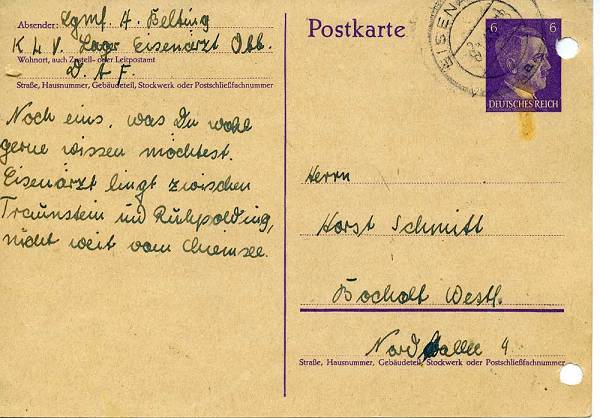 Absender: Lgmf. A. Belting
K L V. Lager Eisenärzt Obb.
Wohnort, auch Zustell- oder Leitpostamt
D. A. F.
Straße, Hausnummer, Gebäudeteil, Stockwerk oder Postschließfachnummer
Noch eins, was Du wohl
gerne wissen möchtest.
Eisenärzt liegt zwischen
Traunstein und Ruhpolding,
nicht weit vom Chiemsee.
Postkarte
EISEN
6 6
DEUTSCHES REICH
Herrn
Horst Schmitt
Bocholt Westf.
Nord allee 9
Straße, Hausnummer, Gebäudeteil, Stockwerk oder Postschließfachnummer